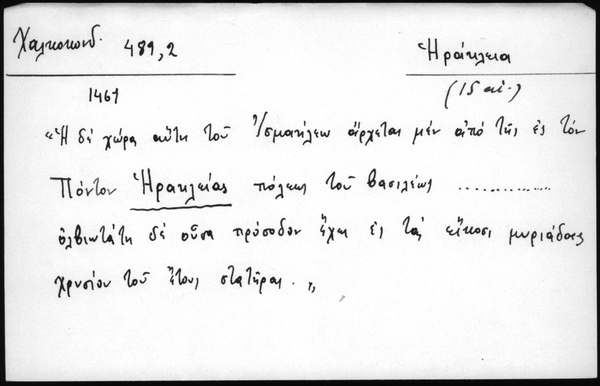 Χαλκοκονδ. 489,2
Ἡράκλεια
1461
(15 αἰ.)
"Ἡ δέ χώρα αὕτη τοῦ Ἰσμαήλεω ἄρχεται μέν ἀπό τῆς ἐς τόν
Πόντον Ἡρακλείας πόλεως τοῦ βασιλέως ...............
ὀλβιωτάτη δέ οὖσα πρόσοδον ἔχει ἐς τάς εἴκοσι μυριάδας
χρυσίου τοῦ ἔτους στατῆρας. „